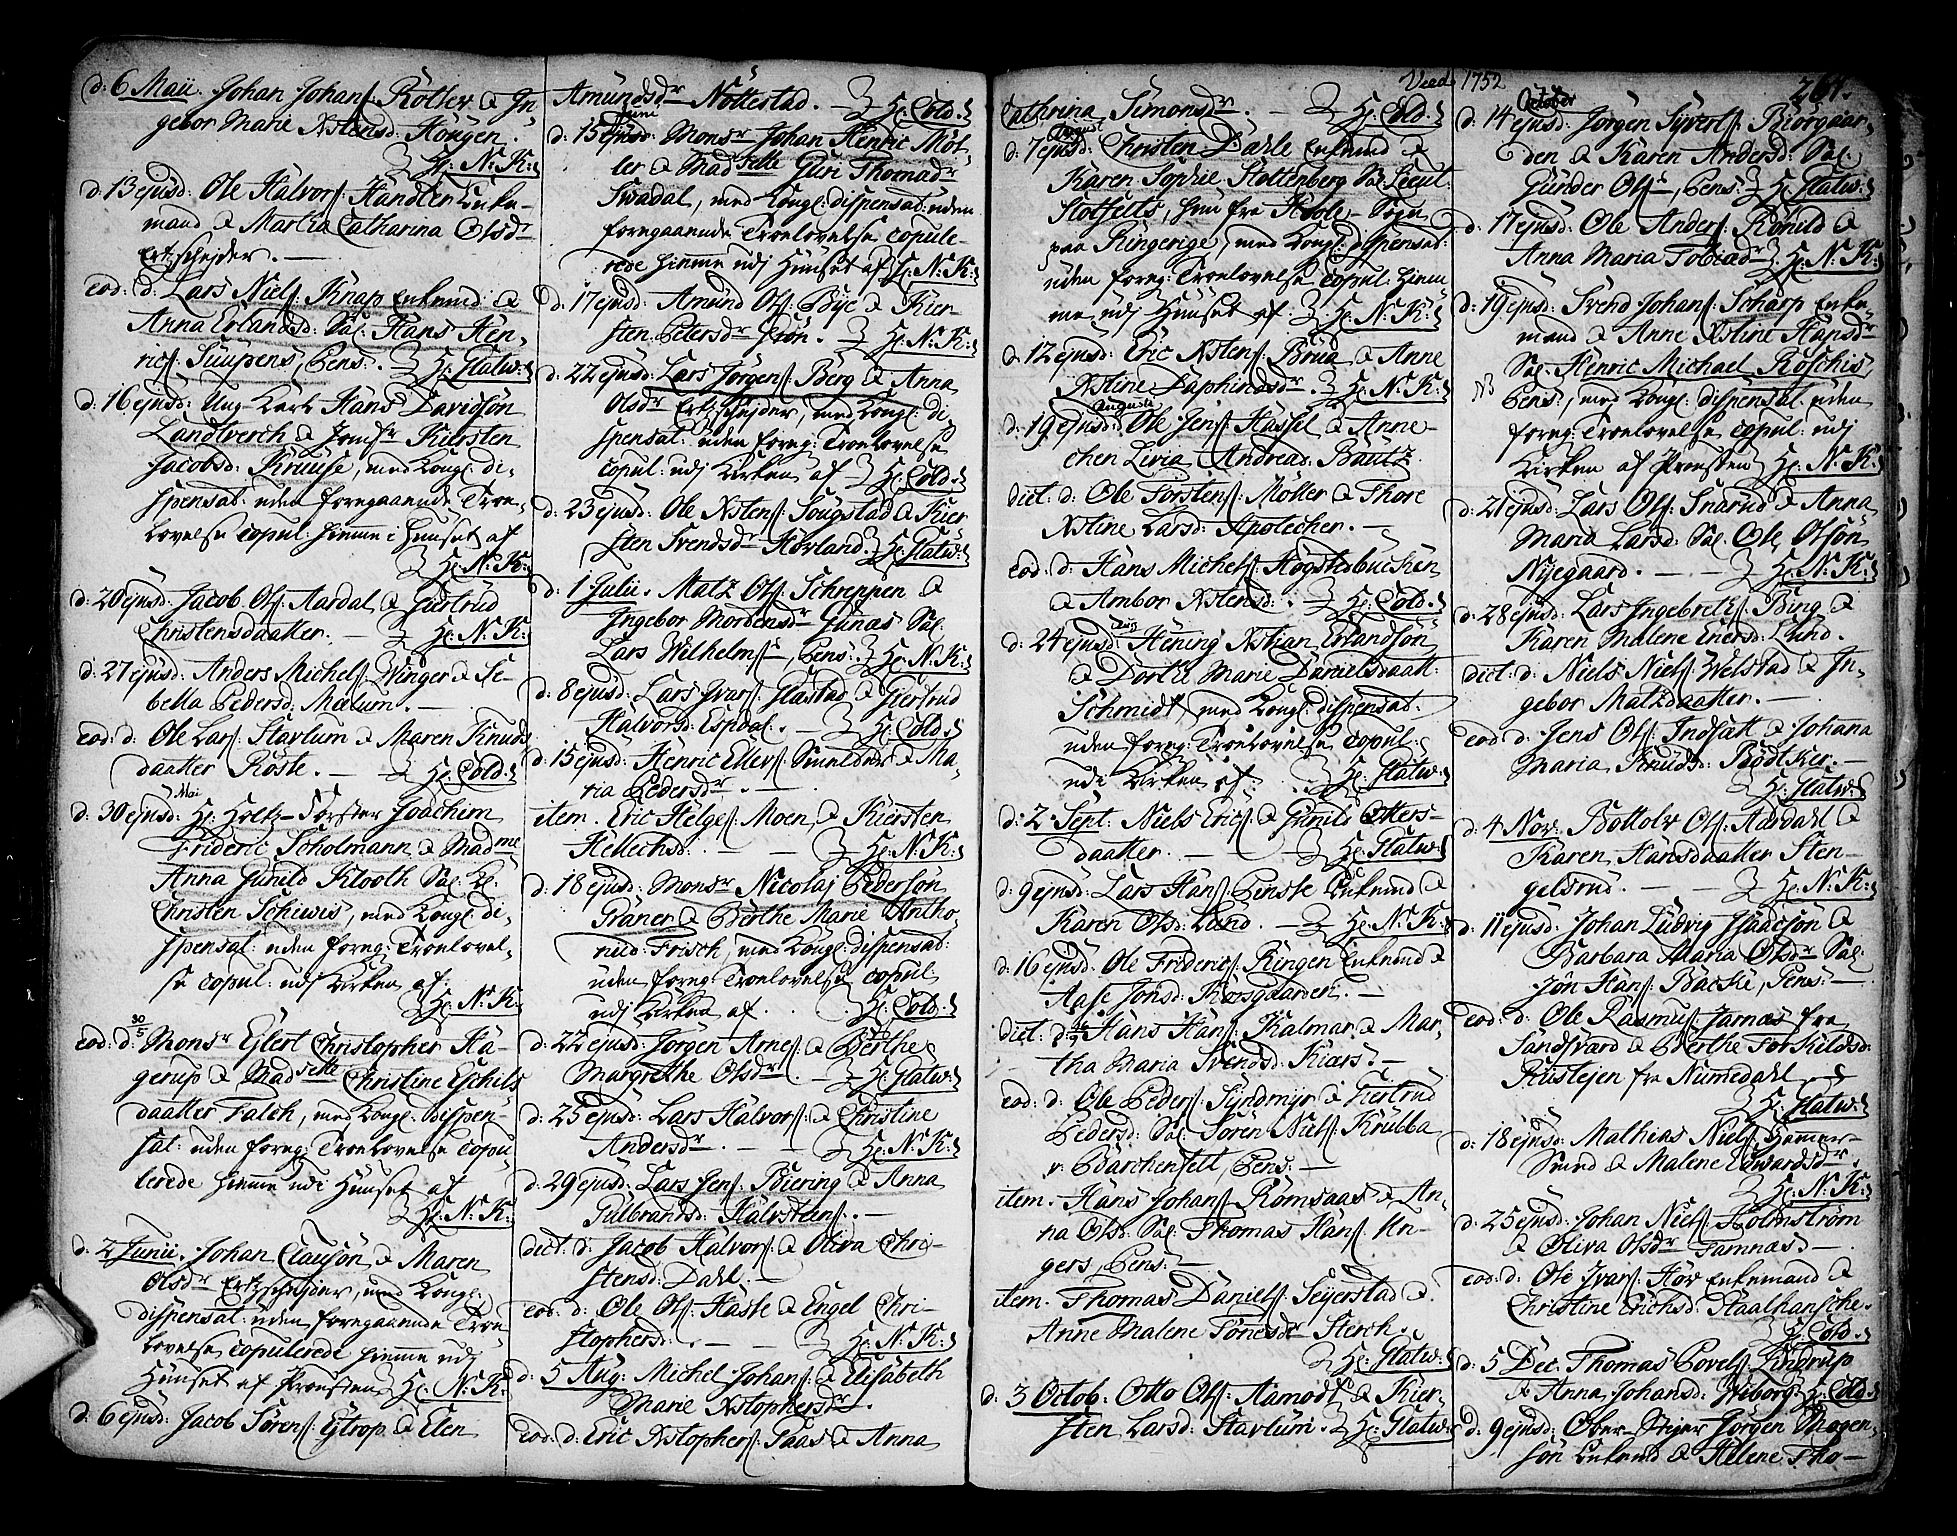 d: 6 Maii. Johan Johans: Rotter & In
gebor Marie Xstensd: Hougen.
H: N: K:
d: 13 ejusd: Ole Halvors: Enke-
mand & Martha Catharina Olsdr
Ertzschejder. —
eod: d: Lars Niels: Knap Enkemd &
Anna Erlandsd: Sal: Hans Hen-
rics: Suupens, Pens: H: Flatw:
d: 16 ejusd: Ung-Karl Hans Davidsøn
Landtverch & Jomfr Kiersten
Jacobsd: Kruuse, med Kongl: di-
spensat: uden foregaaende Troe-
lovelse copul: hiemme i Huuset af
H: N: K:
d: 20 ejusd: Jacob Ols: Aardal & Giertrud
Christensdaatter. — H: N: K:
d: 27 ejusd: Anders Michels: Winger & Se-
bella Pedersd: Mælum. —
eod: d: Ole Lars: Stavlum & Maren Knuds
daatter Røste. — H: Cold:
Mai
d: 30 ejusd: H: Holtz-Førster Joachim
Frideric Scholmann & Madme
Anna Gunild Klooth Sal: H:
Christen Schiwis, med Kongl: di-
spensat: uden foreg: Troelovel-
se copul: udj Kirken af:
H: N: K:
30/5
eod: d: Monsr Ejlert Christopher Ha-
gerup & Madselle Christine Eschils
daatter Falch, med Kongl: dispen-
sat: uden foreg: Troelovelse copu
lerede hiemme udi Huuset af
H: N: K:
d: 2 Junii. Johan Clausøn & Maren
Olsdr Ertzschejder, med Kongl:
dispensat: uden foregaaende Troe
lovelse copulerede hiemme udj
Huuset af Provsten H: N: K:
d: 6 ejusd: Jacob Sørens: Ejtrop & Elen
Amundsdr Nøttestad. — H: Cold:
Juni
d: 15 ejusd: Monsr Johan Henric Møl-
ler & Madselle Guri Thomædr
Swadal, med Kongl: dispensad: uden
foregaaende Troelovelse copule-
rede hiemme udj Huuset af H: N: K:
d: 17 ejusd: Amund Ols: Bye & Kier-
sten Pedersdr Grøn. — H: N: K:
d: 22 ejusd: Lars Jørgens: Berg & Anna
Olsdr Ertzschejder, med Kongl: di-
spensat: uden foreg: Troelovelse
copul: udj Kirken af H: Cold:
d: 23 ejusd: Ole Xstens: Sougstad & Kier
sten Svendsdr Hovland. H: Flatw:
d: 1 Julii. Matz Ols: Schreppen &
Ingebor Mordensdr Gunæs Sal:
Lars Wilhelms:, Pens: H: N: K:
d: 8 ejusd: Lars Ivars: Flastad & Giertrud
Halvorsd: Espdal. — H: Cold:
d: 15 ejusd: Henric Ellevs: & Ma-
ria Pedersdr. —
item. Eric Helges: Moen & Kiersten
Kelechsd: — H: N: K:
d: 18 ejusd: Monsr Nicolaj Pedersøn
Graner & Berthe Marie Antho-
nisd: Frisch, med Kongl: dispensad:
uden foreg: Troelovelse copul
udj Kirken af H: Cold:
d: 22 ejusd: Jørgen Arnes: & Berthe
Margrethe Olsdr. — H: Flatw:
d: 25 ejusd: Lars Halvors: & Christine
Andersdr. — H: N: K:
d: 29 ejusd: Lars Jens: Biering & Anna
Gulbrandsd: Halvstens:. —
dict: d: Jacob Halvors: & Oliva Chri-
stensd: Dahl. —
eod: d: Ole Ols: Haste & Engel Chri-
stophersd: — H: N: K:
d: 5 Aug: Michel Johans: & Elisabeth
Marie Xstophersdr.
eod: d: Eric Xstophers: Faas & Anna
Vied: 1752
264.
Cathrina Simonsdr. — H: Cold:
August
d: 7 ejusd: Christen Dahle Enkemd &
Karen Sophie Stoltenberg Sal: Lieut:
Stoffelts, hun fra Hoole-Sogn
paa Ringerige, med Kongl: dispensad:
uden foreg: Troelovelse copul: hiem
me udj Huuset af. H: N: K:
d: 12 ejusd: Eric Xstens: Brua & Anne
Xstine Daphindsdr. H: N: K:
Augusti
d: 19 ejusd: Ole Jens: Hassel & Anne-
chen Livia Andreæd: Bautz.
dict: d: Ole Torstens: Møller & Thore
Xstine Larsd: Apotecher. —
eod: d: Hans Michels: Høgstedbuchen
& Ambor Xstensd:. — H: Cold:
d: 24 ejusd: Hening Xstian Erlandsøn
& Dorthe Marie Danielsdaatt:
Schmidt, med Kongl: dispensad:
uden foreg: Troelovelse copul:
udi Kirken af: H: Flatw:
d: 2 Sept: Niels Erics: & Gunild Otters-
daatter. — H: Flatw:
d: 9 ejusd: Lars Hans: Penste Enkemd &
Karen Olsd: Lund. — H: N: K:
d: 16 ejusd: Ole Friderics: Ringen Enkemd &
Aase Jonsd: Korsgaarden. —
dict: d: Hans Hans: Kalmar & Mar-
tha Maria Svendsd: Kiærs. —
eod: d: Ole Peders: Syndmyr & Giertrud
Pedersd: Sal: Søren Niels: Krubba
v: Barchenfelt, Pens: —
item. Hans Johans: Romsaas & An-
na Olsd: Sal: Thomas Hans: Un-
gers, Pens: —
item. Thomas Daniels: Seyerstad &
Anne Malene Tønesdr Sterch.
H: Flatw:
d: 3 Octob: Otto Ols: Aamodt & Kier-
sten Larsd: Stavlum. H: Flatw:
October
d: 14 ejusd: Jørgen Syverts: Biorgaar-
den & Karen Andersd: Sal:
Gunder Ols:, Pens: H: Flatw:
d: 17 ejusd: Ole Anders: Rønild &
Anna Maria Tobiædr H: N: K:
d: 19 ejusd: Svend Johans: Scharp Enke-
mand & Anne Xstine Hansdr
Sal: Henric Michael Roschis,
NB
Pens:, med Kongl: dispensat: uden
foreg: Troelovelse copul: udj
Kirken af Provsten H: N: K:
d: 21 ejusd: Lars Ols: Snarud & Anna
Maria Larsd: Sal: Ole Olsøn
Nyegaard. — H: N: K:
d: 28 ejusd: Lars Ingebrets: Bing &
Karen Malene Enersd: Lund.
dict: d: Niels Niels: Welstad & In-
gebor Matzdaatter. —
eod: d: Jens Ols: Indsæt & Johana
Maria Knudsd: Bødtker. —
H: Flatw:
d: 4 Nov: Bottolv Ols: Aardahl &
Karen Hansdaatter Sten-
gelsrud. — H: N: K:
d: 11 ejusd: Johan Ludvig Isaacsøn &
Barbara Maria Olsdr Sal:
Jøn Hans: Backe, Pens: —
eod: d: Ole Rasmus: Jarnæs fra
Sandsværd & Berthe Torkildsd:
Ruslejen fra Numedahl. —
H: Flatw:
d: 18 ejusd: Mathias Niels: Hamer-
Smed & Malene Edwardsdr.
H: N: K:
d: 25 ejusd: Johan Niels: Holmstrøm
& Oliva Olsdr Famnæs. —
eod: d: Ole Ivars: Hov Enkemand &
Christine Erichsd: Staalhansche.
H: Cold:
d: 5 Dec: Thomas Povels: Lindrup
& Anna Johansd: Wiborg H: Cold:
d: 9 ejusd: Ober-Stiger Jørgen Mogen-
søn Enkemd & Helene Tho-